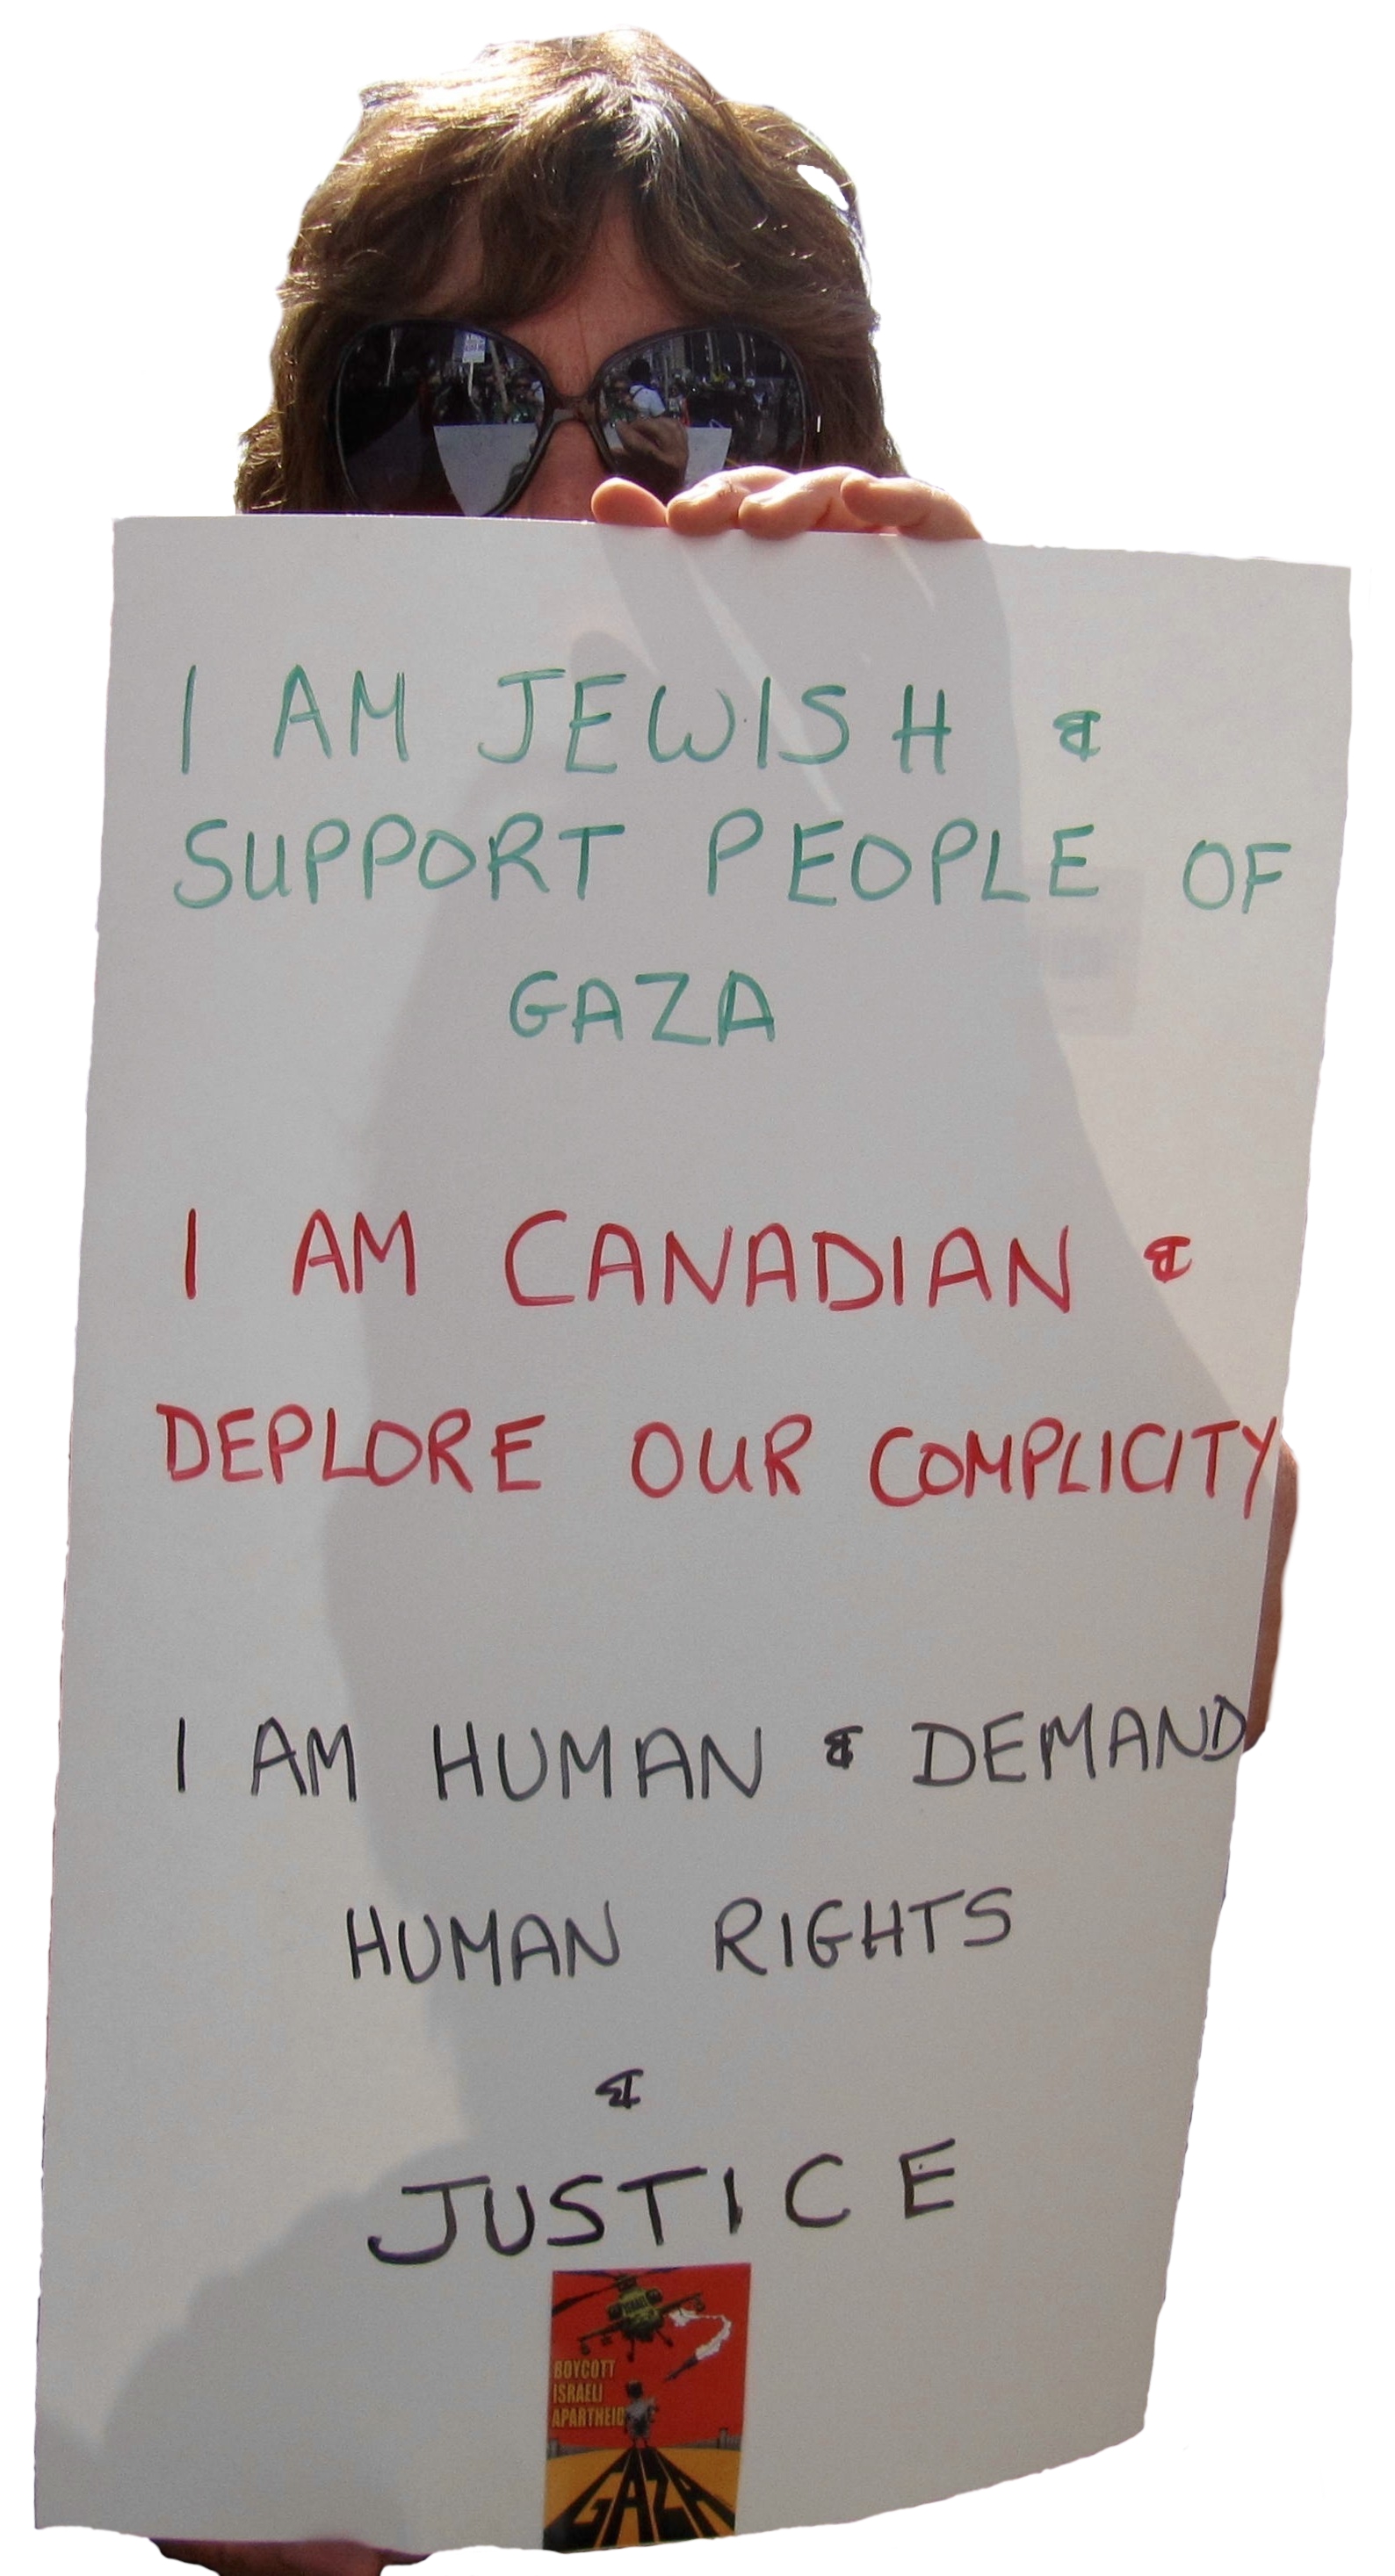 I AM JEWISH &
SUPPORT PEOPLE OF
GAZA
I AM CANADIAN &
DEPLORE OUR COMPLICITY
I AM HUMAN & DEMAND
HUMAN RIGHTS
&
JUSTICE
ISRAEL
BOYCOTT
ISRAELI
APARTHEID
GAZA